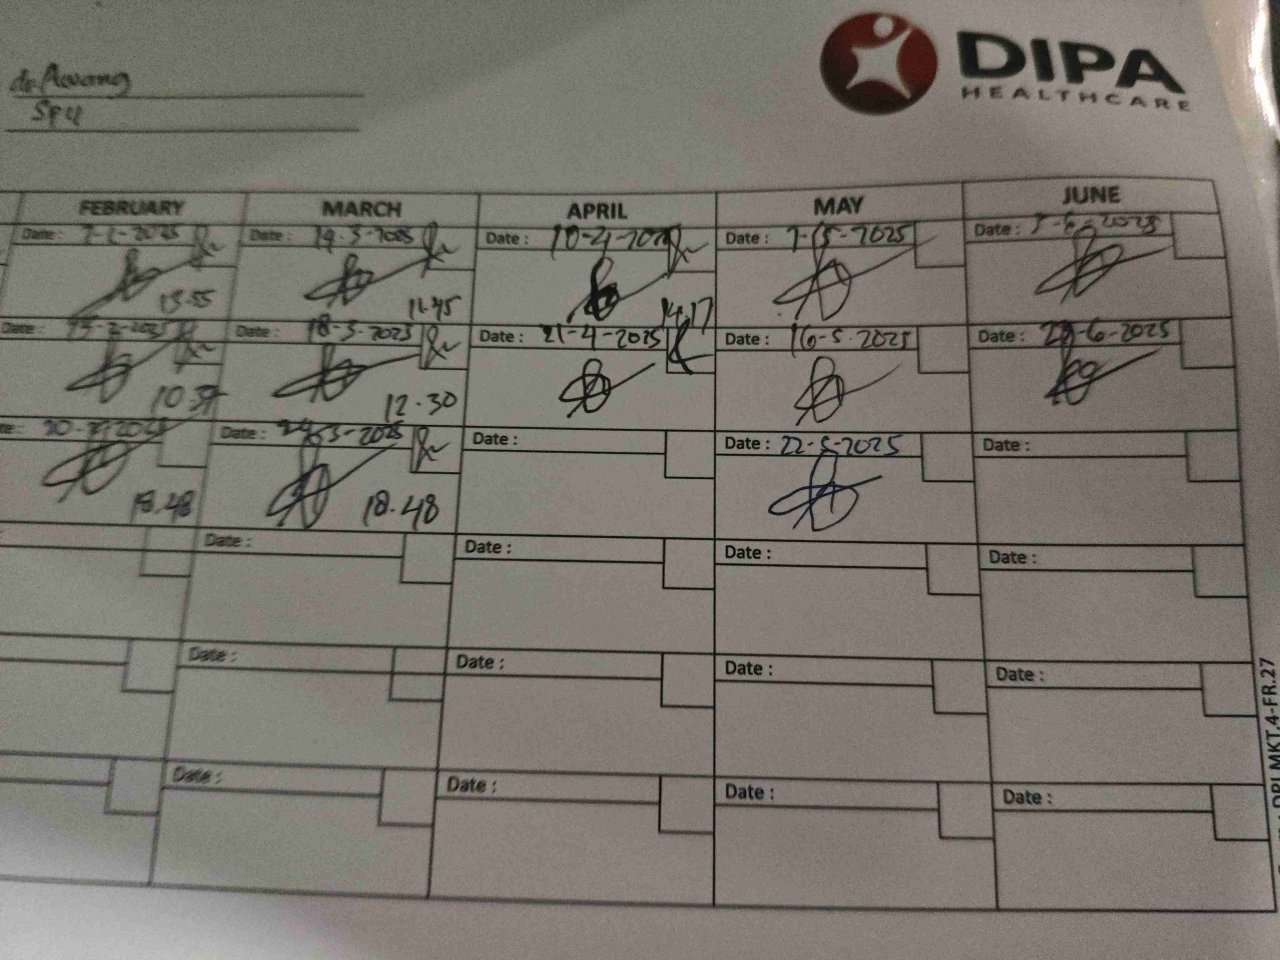 dr. Awang
DIPA
HEALTHCARE
FEBRUARY MARCH APRIL MAY JUNE
Date: 7-2-2025 Date : 14-3-2025 Date : 10-4-2025 Date : 7-5-2025 Date :
13.55 11.45 14.17
Date: Date : 18-3-2025 Date : 21-4-2025 Date : 16-5-2025 Date : -6-2025
10.37 12.30
Date : -3-2025 Date : Date : 22-5-2025 Date :
18.48 18.48
Date : Date : Date : Date :
Date : Date : Date : Date :
Date : Date : Date : Date :
MKT.4-FR.27